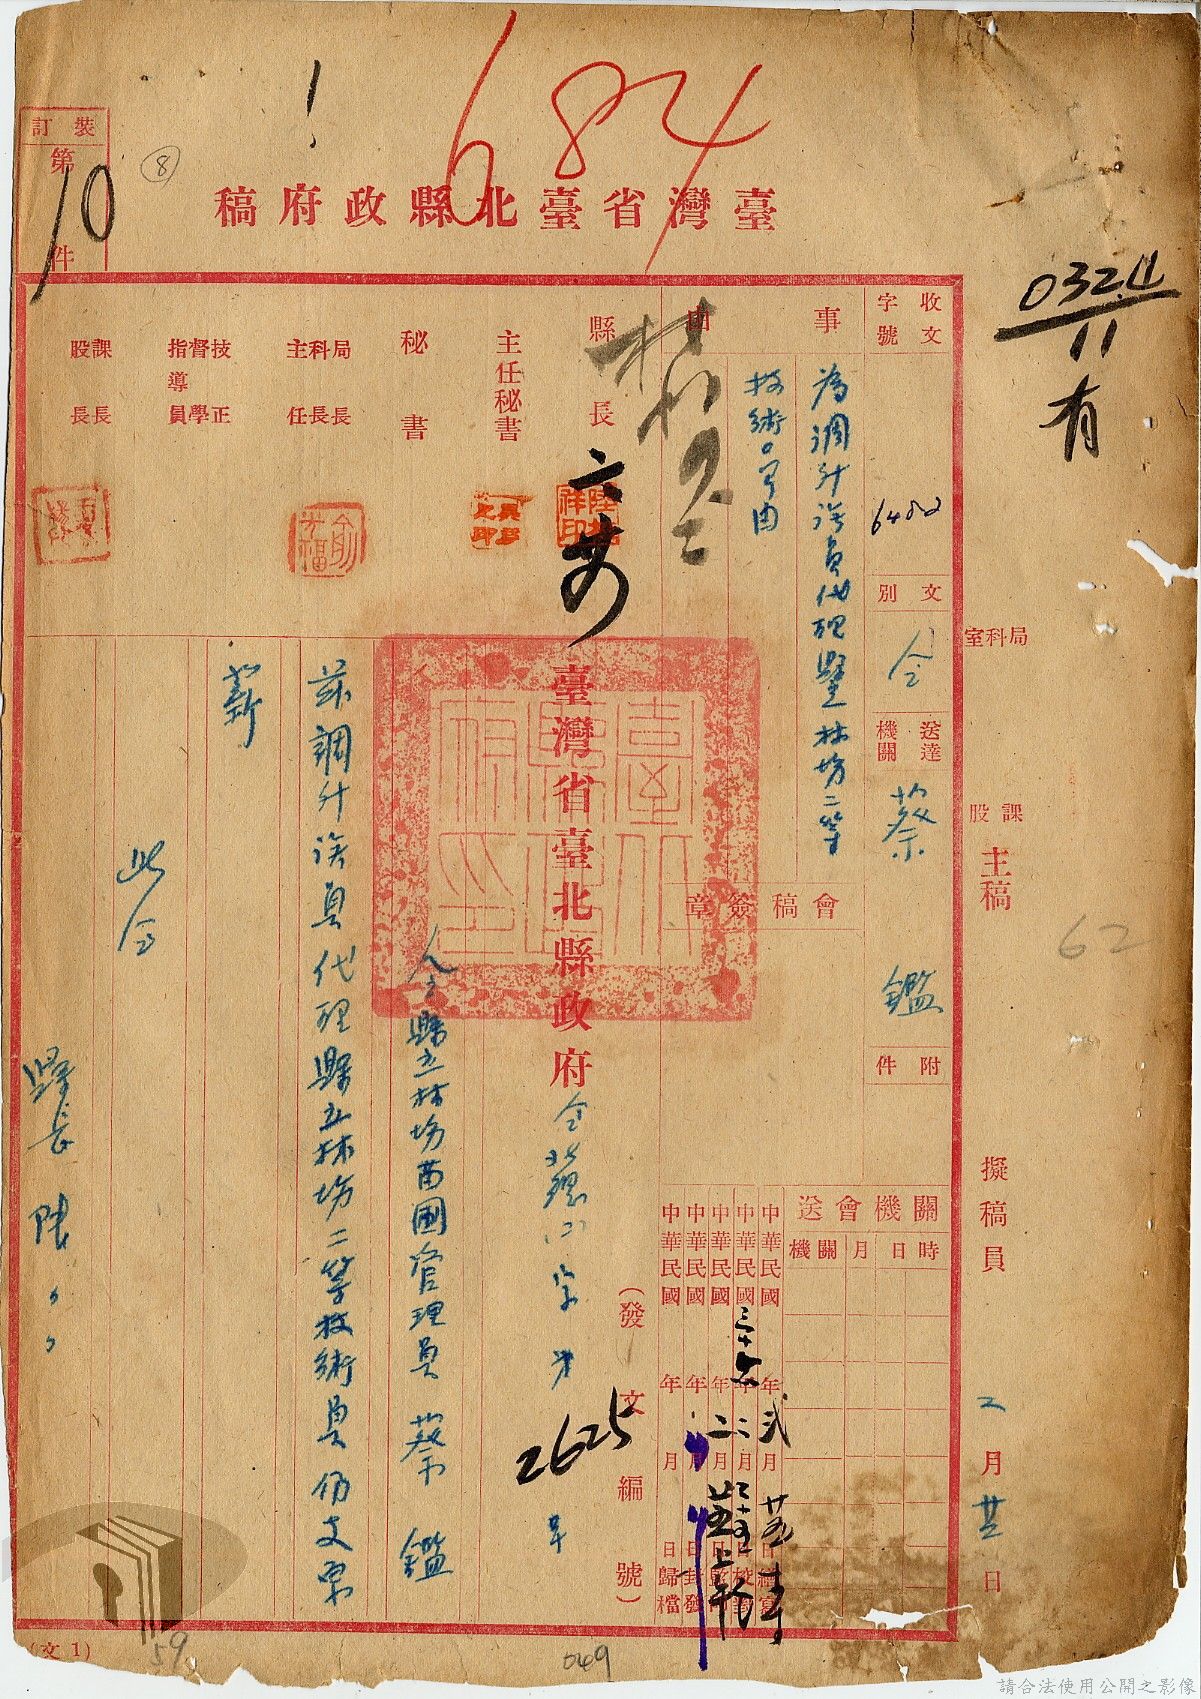 684
裝訂
第
10
件
8
臺灣省臺北縣政府稿
0322411
11
有
收文
字號
6482
文別
令
送達
機關
蔡 鑑
附件
事由
為調升該員代理縣林場二等
技術員由
會稿簽章
縣長
主任秘書
秘書
局長
科長
主任
技正
督學
指導員
課長
股長
局科室
課股
主稿
擬稿員
二月廿五日
62
關機會送
時日月關機
中華民國 年 月 日繕寫
中華民國三十六年二月 日校對
中華民國 年二月 日監印
中華民國 年 月 日封發
中華民國 年 月 日歸檔
(發文編號)
臺灣省臺北縣政府令
字第
2625
號
令縣立林場苗圃管理員 蔡 鑑
茲調升該員代理縣立林場二等技術員仍支原
薪
此令
縣長 陸
(文1)
59
049
請合法使用公開之影像